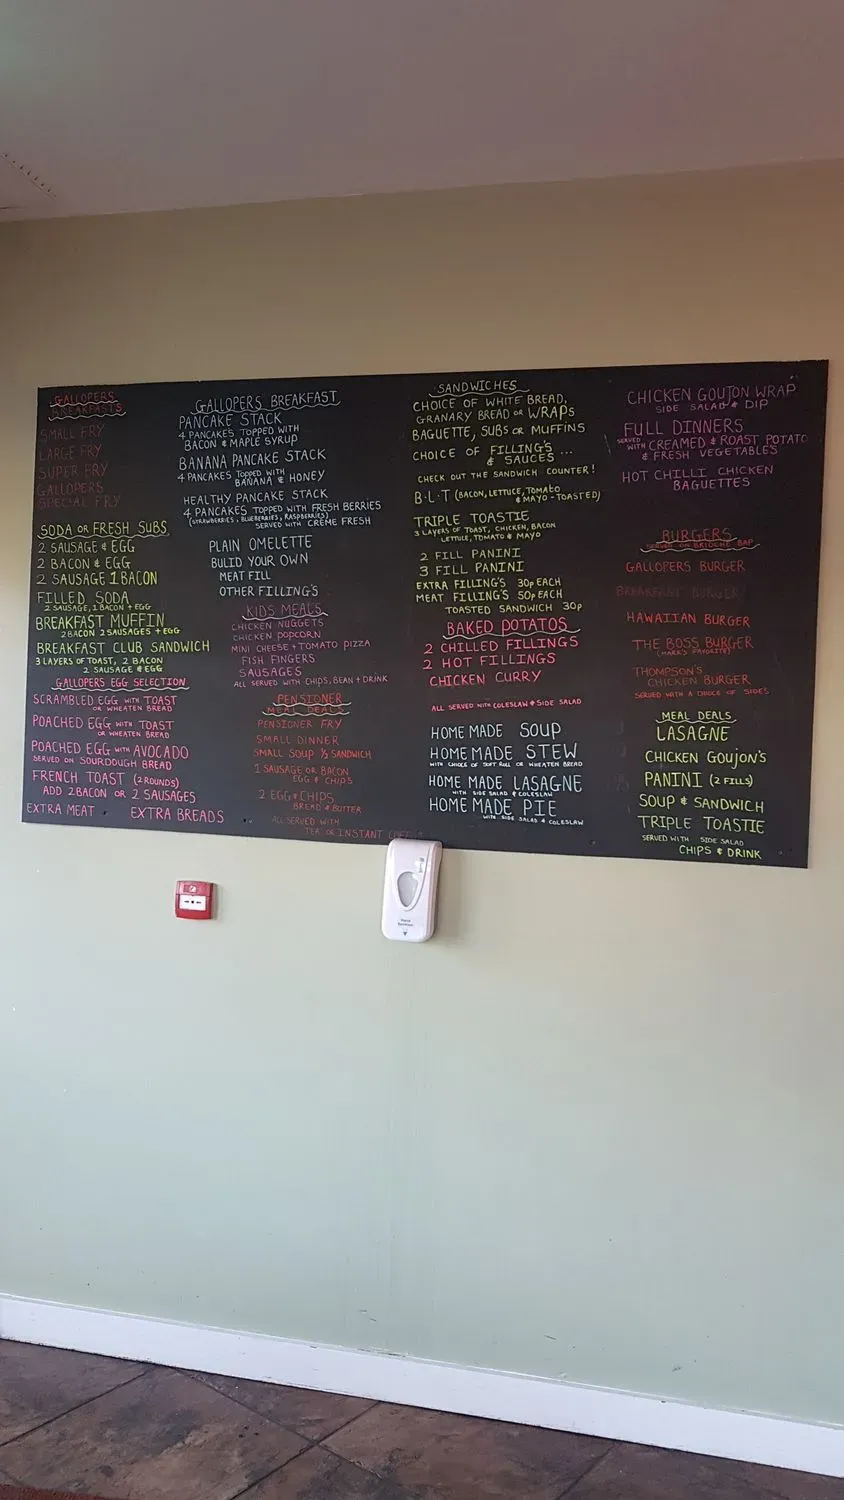 GALLOPERS
BREAKFASTS
SMALL FRY
LARGE FRY
SUPER FRY
GALLOPERS
SPECIAL FRY
SODA OR FRESH SUBS
2 SAUSAGE & EGG
2 BACON & EGG
2 SAUSAGE 1 BACON
FILLED SODA
2 SAUSAGE, 1 BACON + EGG
BREAKFAST MUFFIN
2 BACON 2 SAUSAGES + EGG
BREAKFAST CLUB SANDWICH
3 LAYERS OF TOAST, 2 BACON
2 SAUSAGE & EGG
GALLOPERS EGG SELECTION
SCRAMBLED EGG WITH TOAST
OR WHEATEN BREAD
POACHED EGG WITH TOAST
OR WHEATEN BREAD
POACHED EGG WITH AVOCADO
SERVED ON SOURDOUGH BREAD
FRENCH TOAST (2 ROUNDS)
ADD 2 BACON OR 2 SAUSAGES
EXTRA MEAT EXTRA BREADS
GALLOPERS BREAKFAST
PANCAKE STACK
4 PANCAKES TOPPED WITH
BACON & MAPLE SYRUP
BANANA PANCAKE STACK
4 PANCAKES TOPPED WITH
BANANA & HONEY
HEALTHY PANCAKE STACK
4 PANCAKES TOPPED WITH FRESH BERRIES
(STRAWBERRIES, BLUEBERRIES, RASPBERRIES)
SERVED WITH CRÈME FRESH
PLAIN OMELETTE
BULID YOUR OWN
MEAT FILL
OTHER FILLING'S
KIDS MEALS
CHICKEN NUGGETS
CHICKEN POPCORN
MINI CHEESE + TOMATO PIZZA
FISH FINGERS
SAUSAGES
ALL SERVED WITH CHIPS, BEAN + DRINK
PENSIONER
MEAL DEALS
PENSIONER FRY
SMALL DINNER
SMALL SOUP ½ SANDWICH
1 SAUSAGE OR BACON
EGG & CHIPS
2 EGG & CHIPS
BREAD & BUTTER
ALL SERVED WITH
TEA OR INSTANT
SANDWICHES
CHOICE OF WHITE BREAD,
GRANARY BREAD OR WRAPS
BAGUETTE, SUBS OR MUFFINS
CHOICE OF FILLING'S
& SAUCES ...
CHECK OUT THE SANDWICH COUNTER!
B·L·T (BACON, LETTUCE, TOMATO
& MAYO - TOASTED)
TRIPLE TOASTIE
3 LAYERS OF TOAST, CHICKEN, BACON
LETTUCE, TOMATO & MAYO
2 FILL PANINI
3 FILL PANINI
EXTRA FILLING'S 30p EACH
MEAT FILLING'S 50p EACH
TOASTED SANDWICH 30p
BAKED POTATOS
2 CHILLED FILLINGS
2 HOT FILLINGS
CHICKEN CURRY
ALL SERVED WITH COLESLAW & SIDE SALAD
HOME MADE SOUP
HOME MADE STEW
WITH CHOICE OF SOFT ROLL OR WHEATEN BREAD
HOME MADE LASAGNE
WITH SIDE SALAD & COLESLAW
HOME MADE PIE
WITH SIDE SALAD & COLESLAW
CHICKEN GOUJON WRAP
SIDE SALAD & DIP
FULL DINNERS
SERVED WITH CREAMED & ROAST POTATO
& FRESH VEGETABLES
HOT CHILLI CHICKEN
BAGUETTES
BURGERS
SERVED ON BRIOCHE BAP
GALLOPERS BURGER
BREAKFAST BURGER
HAWAIIAN BURGER
THE BOSS BURGER
(MARK'S FAVORITE)
THOMPSON'S
CHICKEN BURGER
SERVED WITH A CHOICE OF SIDES
MEAL DEALS
LASAGNE
CHICKEN GOUJON'S
PANINI (2 FILLS)
SOUP & SANDWICH
TRIPLE TOASTIE
SERVED WITH SIDE SALAD
CHIPS & DRINK